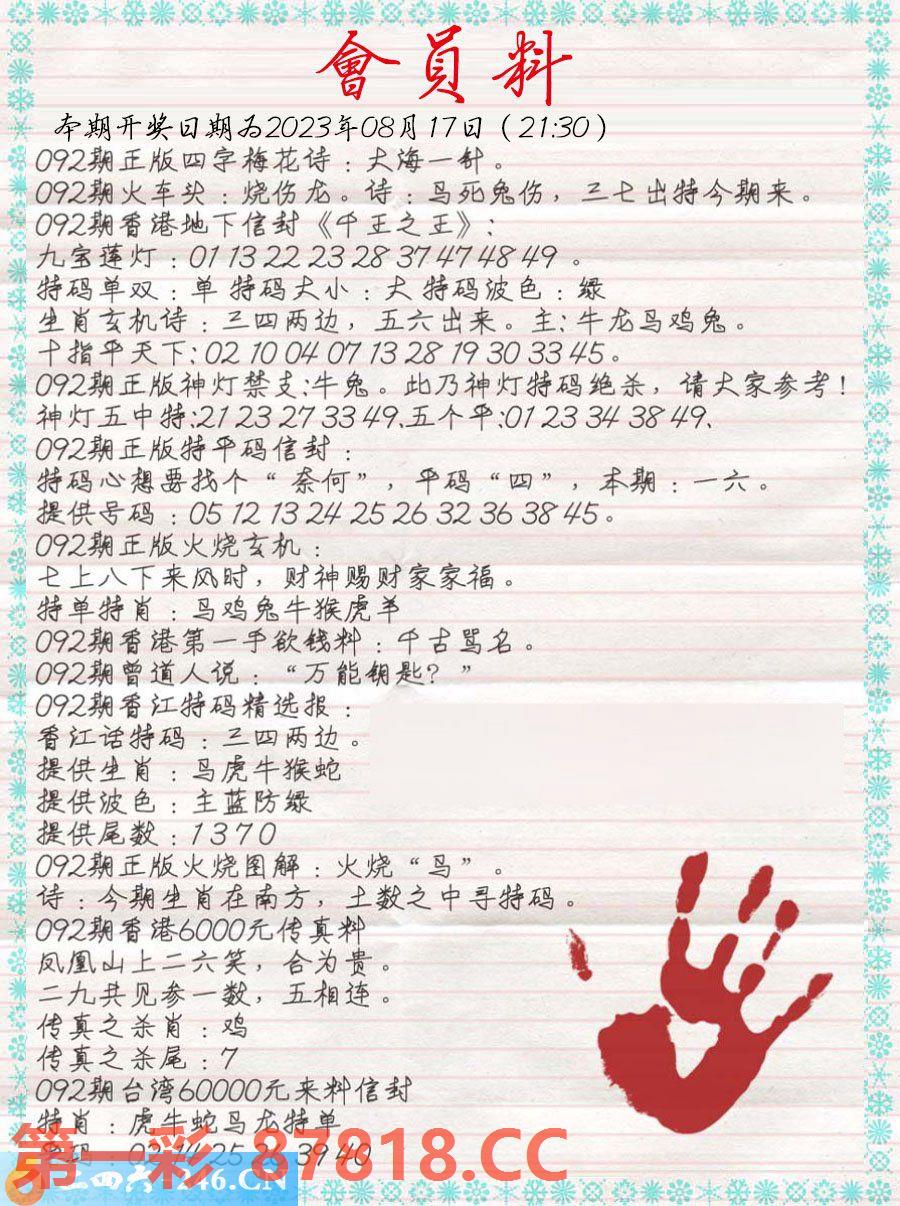 會員料
本期开奖日期为2023年08月17日（21:30）
092期正版四字梅花诗：大海一针。
092期火车头：烧伤龙。诗：鸟死兔伤，三七出特今期来。
092期香港地下信封《千王之王》:
九宝莲灯：01 13 22 23 28 37 47 48 49 。
特码单双：单 特码大小：大 特码波色：绿
生肖玄机诗：三四两边，五六出来。主: 牛龙鸟鸡兔。
十指平天下: 02 10 04 07 13 28 19 30 33 45。
092期正版神灯禁支:牛兔。此乃神灯特码绝杀，请大家参考！
神灯五中特:21 23 27 33 49.五个平:01 23 34 38 49.
092期正版特平码信封：
特码心想要找个“奈何”，平码“四”，本期：一六。
提供号码：05 12 13 24 25 26 32 36 38 45。
092期正版火烧玄机：
七上八下来风时，财神赐财家家福。
特单特肖：鸟鸡兔牛猴虎羊
092期香港第一手欲钱料：千古骂名。
092期曾道人说：“万能钥匙？”
092期香江特码精选报：
香江话特码：三四两边。
提供生肖：鸟虎牛猴蛇
提供波色：主蓝防绿
提供尾数：1 3 7 0
092期正版火烧图解：火烧“鸟”。
诗：今期生肖在南方，土数之中寻特码。
092期香港6000元传真料
凤凰山上二六笑，合为贵。
二九共见参一数，五相连。
传真之杀肖：鸡
传真之杀尾：7
092期台湾60000元来料信封
特肖：虎牛蛇鸟龙特单
25 39 40
第一彩 87818.CC
二四六 246.CN